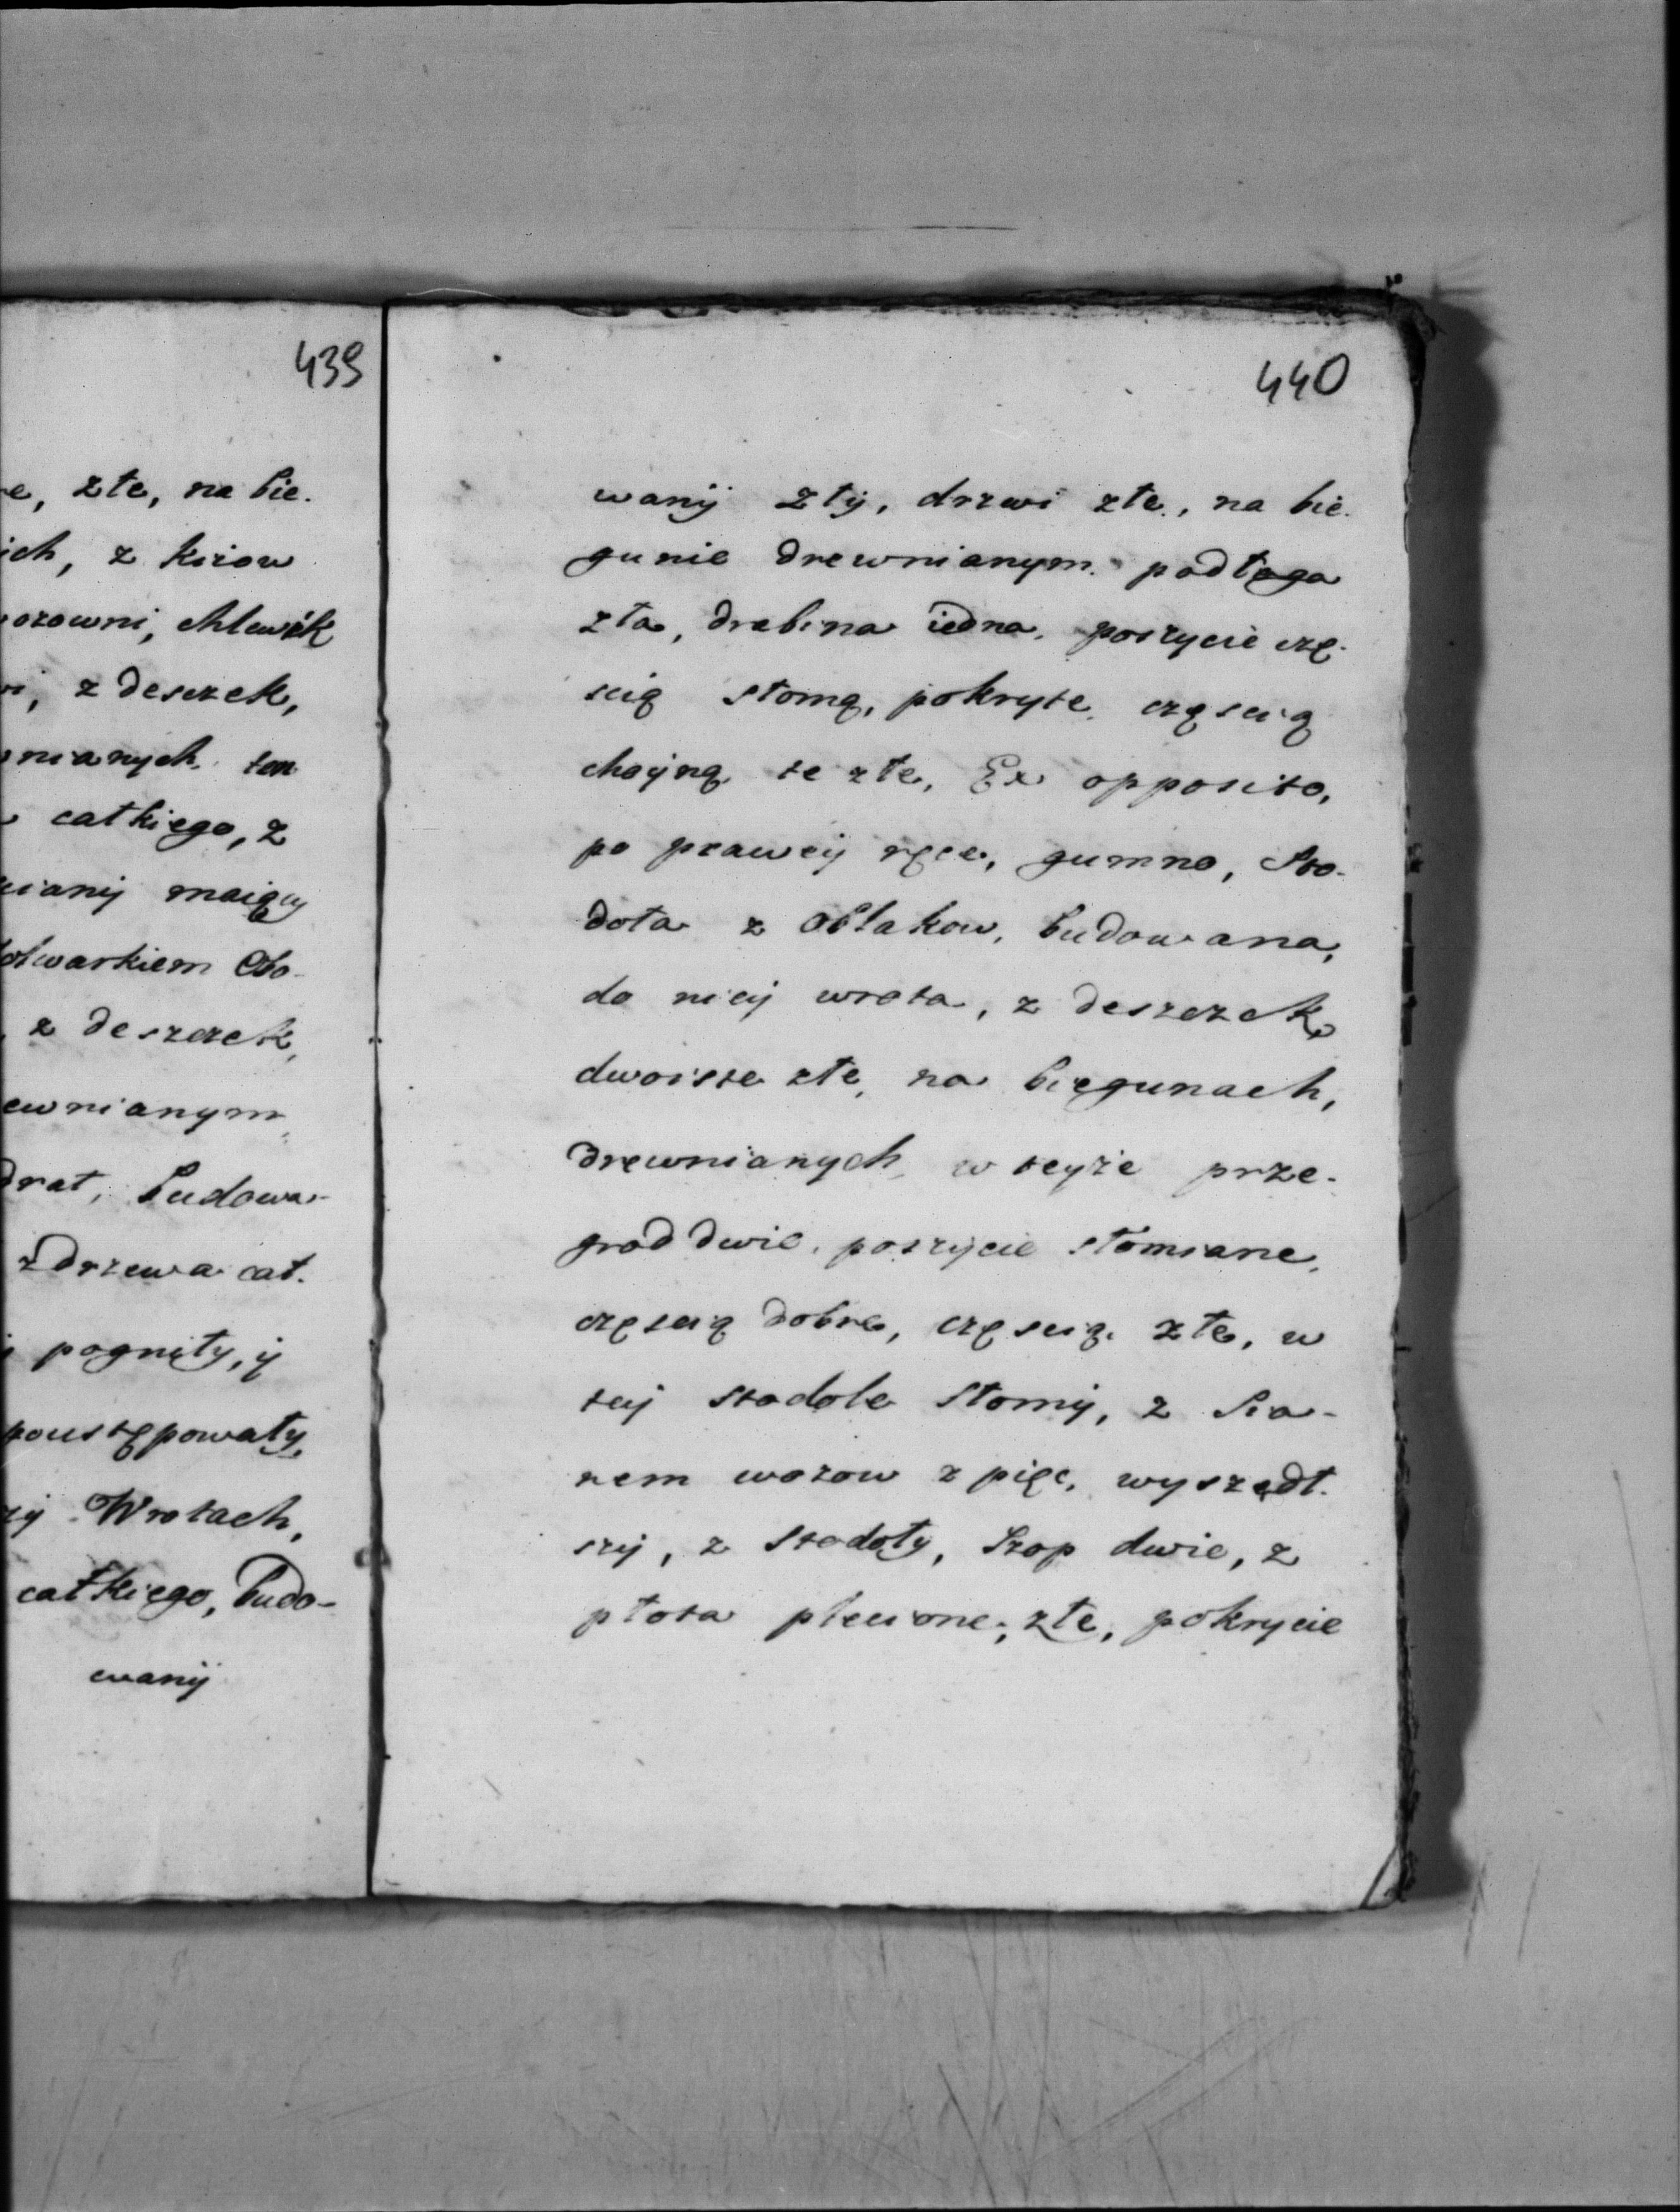 439
e, złe, na bie.
ich, z kiiow
ozowni, chlewik
i, z deszczek,
nianych, ten
całkiego, z
iany maiący
olwarkiem Obo-
z deszczek,
ewnianym,
drat, Budowa-
z drzewa cał.
pogniły, y
poustępowały,
Wrotach,
całkiego, budo-
wany
440
wany zły, drzwi złe, na bie.
gunie drewnianym. podłoga
zła, drabina iedna. poszycie czę.
scią słomą, pokryte, częscią
choyną te złe, Ex opposito,
po prawey ręce, gumno, Sto-
doła z Oblakow, budowana,
do niey wrota, z deszczek
dwoiste złe, na biegunach,
drewnianych w teyże prze-
grod dwie, poszycie słomiane,
częscią dobre, częscią złe, w
tey stodole Słomy, z Sia-
nem wozow z pięc, wyszedł.
szy, z Stodoły, Szop dwie, z
płota plecione, złe, pokrycie